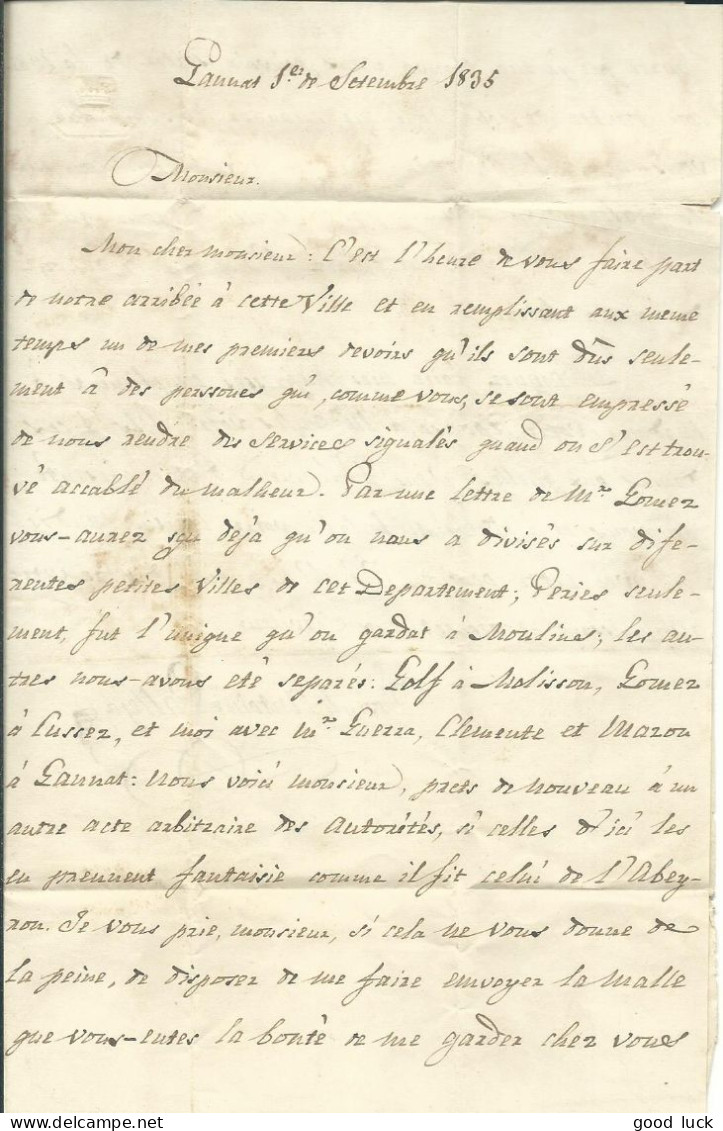 Gannat 1er de Setembre 1835
Monsieur.
Mon cher monsieur: C'est l'heure de vous faire part
de notre arribée à cette Ville et en remplissant aux meme
temps un de mes premiers devoirs qu'ils sont dûs seule-
ment à des perssones qui, comme vous, se sont empressé
de nous rendre des services signalés quand on s'est trou-
vé accablé du malheur. Par une lettre de Mr Gomez
vous-aurez sçu dejà qu'on nous a divisés sur dife-
rentes petites Villes de cet Departement; Peries seule-
ment, fut l'unique qu'on gardat à Moulins; les au-
tres nous-avons eté separés: Golf à Molisson, Gomez
à Cusset, et moi avec mr Guerra, Clemente et Mazon
à Gannat: Nous voici monsieur, prets de nouveau à un
autre acte arbitraire des Autorités, si celles d'ici les
en prennent fantaisie comme il fit celui de l'Abey-
ron. Je vous prie, monsieur, si cela ne vous donne de
la peine, de disposer de me faire envoyer la malle
que vous-eutes la bonté de me garder chez vous
good luck
www.delcampe.net